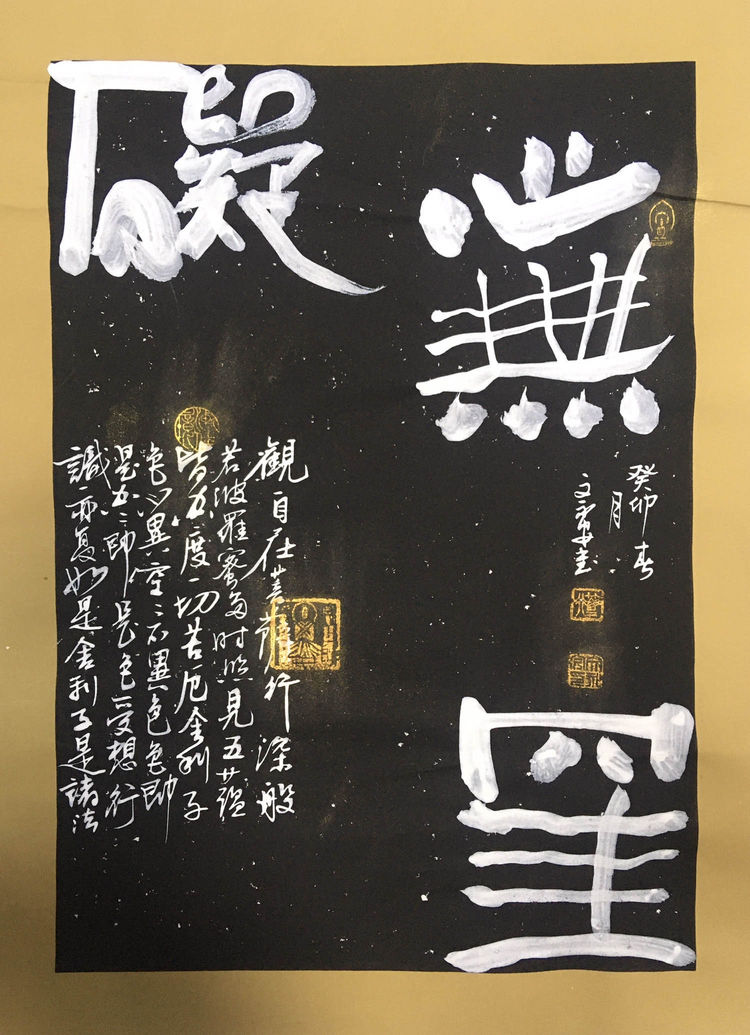 心無罣
癸卯春
月
礙
觀自在菩薩行深般
若波羅蜜多時照見五蘊
皆空度一切苦厄舍利子
色不異空〻不異色色即
是空〻即是色受想行
識亦復如是舍利子是諸法